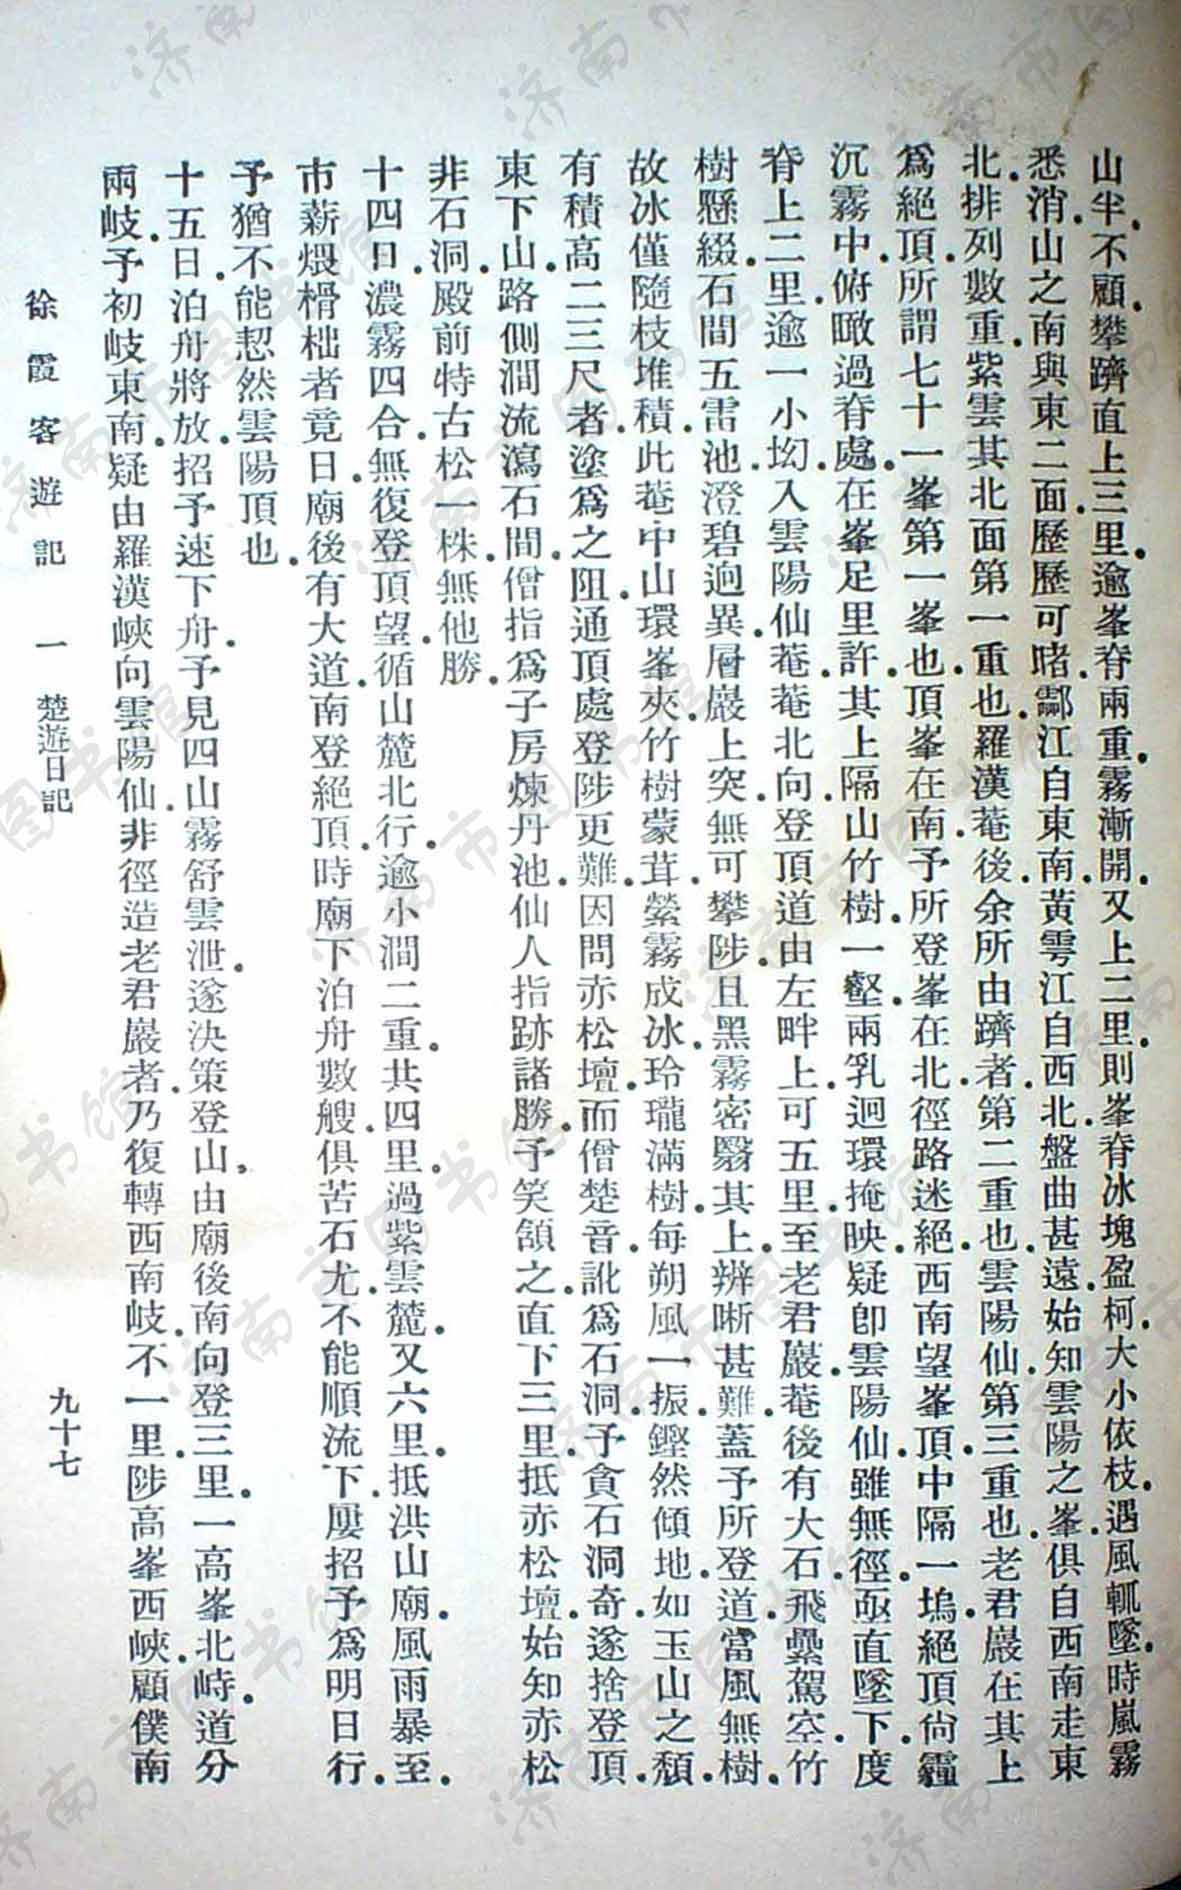 山半不顧攀躋直上三里逾峯脊兩重霧漸開又上二里則峯脊冰塊盈柯大小依枝遇風輒墜時嵐霧
悉消山之南與東二面歷歷可睹酃江自東南黃雩江自西北盤曲甚遠始知雲陽之峯俱自西南走東
北排列數重紫雲其北面第一重也羅漢菴後余所由躋者第二重也雲陽仙第三重也老君巖在其上
爲絕頂所謂七十一峯第一峯也頂峯在南予所登峯在北徑路迷絕西南望峯頂中隔一塢絕頂尙霾
沉霧中俯瞰過脊處在峯足里許其上隔山竹樹一壑兩乳迴環掩映疑卽雲陽仙雖無徑亟直墜下度
脊上二里逾一小坳入雲陽仙菴菴北向登頂道由左畔上可五里至老君巖菴後有大石飛纍駕空竹
樹懸綴石間五雷池澄碧逈異層巖上突無可攀陟且黑霧密翳其上辨晰甚難蓋予所登道當風無樹
故冰僅隨枝堆積此菴中山環峯夾竹樹蒙茸縈霧成冰玲瓏滿樹每朔風一振鏗然傾地如玉山之頹
有積高二三尺者塗爲之阻通頂處登陟更難因問赤松壇而僧楚音訛爲石洞予貪石洞奇遂捨登頂
東下山路側澗流瀉石間僧指爲子房煉丹池仙人指跡諸勝予笑頷之直下三里抵赤松壇始知赤松
非石洞殿前特古松一株無他勝
十四日濃霧四合無復登頂望循山麓北行逾小澗二重共四里過紫雲麓又六里抵洪山廟風雨暴至
市薪煨榾柮者竟日廟後有大道南登絕頂時廟下泊舟數艘俱苦石尤不能順流下屢招予爲明日行
予猶不能恝然雲陽頂也
十五日泊舟將放招予速下舟予見四山霧舒雲泄遂決策登山由廟後南向登三里一高峯北峙道分
兩岐予初岐東南疑由羅漢峽向雲陽仙非徑造老君巖者乃復轉西南岐不一里陟高峯西峽顧僕南
徐霞客遊記 一 楚遊日記 九十七
济南市图书馆